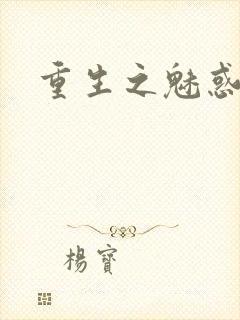 重生之魅惑
楊寶